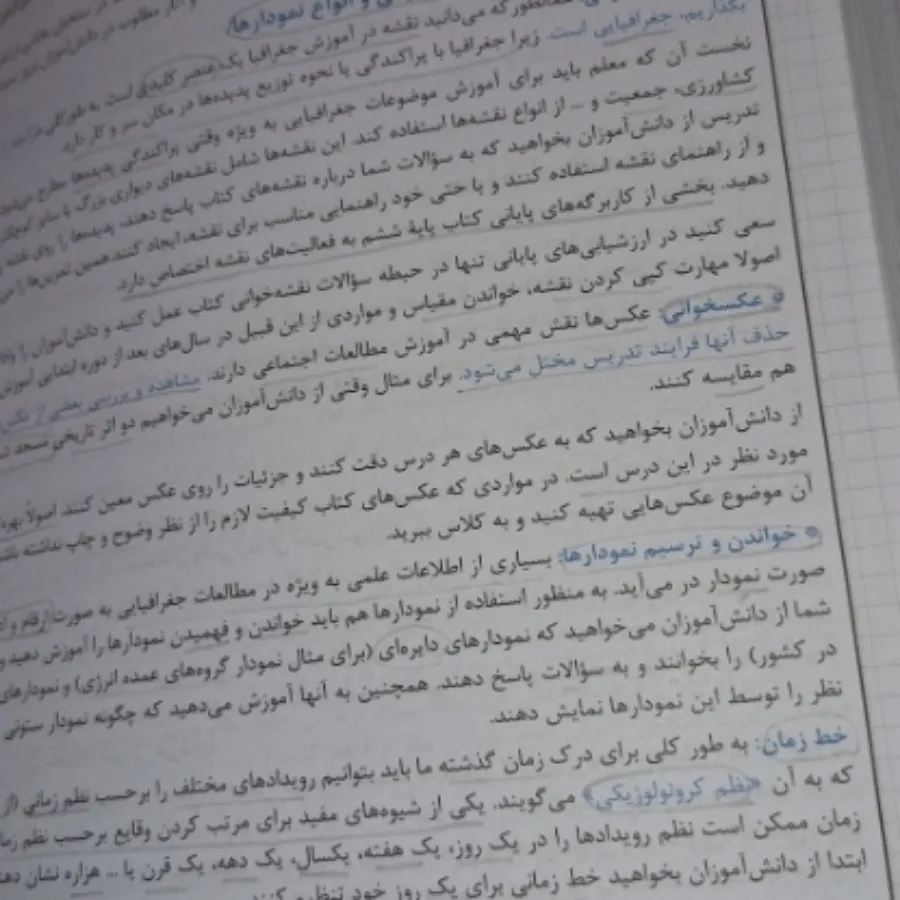 و انواع نمودارها)
بگذاریم، جغرافیایی است. زیرا جغرافیا با پراکندگی یا نحوه توزیع پدیده‌ها در مکان سر و کار دارد.
همانطور که می‌دانید نقشه در آموزش جغرافیا یک عنصر کلیدی است به طور کلی
نخست آن که معلم باید برای آموزش موضوعات جغرافیایی به ویژه وقتی پراکندگی پدیده‌ها مطرح
کشاورزی، جمعیت و ... از انواع نقشه‌ها استفاده کند. این نقشه‌ها شامل نقشه‌های دیواری بزرگ یا
تدریس از دانش‌آموزان بخواهید که به سؤالات شما درباره نقشه‌های کتاب پاسخ دهند، پدیده‌ها را روی نقشه
و از راهنمای نقشه استفاده کنند و یا حتی خود راهنمایی مناسب برای نقشه، ایجاد کنند همین تمرین‌ها را
دهید. بخشی از کاربرگه‌های پایانی کتاب پایهٔ ششم به فعالیت‌های نقشه اختصاص دارد.
سعی کنید در ارزشیابی‌های پایانی تنها در حیطه سؤالات نقشه‌خوانی کتاب عمل کنید و دانش‌آموزان را
اصولا مهارت کپی کردن نقشه، خواندن مقیاس و مواردی از این قبیل در سال‌های بعد از دوره ابتدایی آموزش
عکسخوانی: عکس‌ها نقش مهمی در آموزش مطالعات اجتماعی دارند. مشاهده و بررسی بعضی از
حذف آنها فرایند تدریس مختل می‌شود. برای مثال وقتی از دانش‌آموزان می‌خواهیم دو اثر تاریخی
هم مقایسه کنند.
از دانش‌آموزان بخواهید که به عکس‌های هر درس دقت کنند و جزئیات را روی عکس معین کنند. اصولاً
مورد نظر در این درس است. در مواردی که عکس‌های کتاب کیفیت لازم را از نظر وضوح و چاپ نداشته
آن موضوع عکس‌هایی تهیه کنید و به کلاس ببرید.
خواندن و ترسیم نمودارها: بسیاری از اطلاعات علمی به ویژه در مطالعات جغرافیایی به صورت ارقام و
صورت نمودار در می‌آید. به منظور استفاده از نمودارها هم باید خواندن و فهمیدن نمودارها را آموزش دهید و
شما از دانش‌آموزان می‌خواهید که نمودارهای دایره‌ای (برای مثال نمودار گروه‌های عمده انرژی) و نمودارهای
در کشور) را بخوانند و به سؤالات پاسخ دهند. همچنین به آنها آموزش می‌دهید که چگونه نمودار ستونی
نظر را توسط این نمودارها نمایش دهند.
خط زمان: به طور کلی برای درک زمان گذشته ما باید بتوانیم رویدادهای مختلف را برحسب نظم زمانی (از
که به آن «نظم کرونولوژیکی» می‌گویند. یکی از شیوه‌های مفید برای مرتب کردن وقایع برحسب نظم
زمان ممکن است نظم رویدادها را در یک روز، یک هفته، یکسال، یک دهه، یک قرن یا ... هزاره نشان
ابتدا از دانش‌آموزان بخواهید خط زمانی برای یک روز خود تنظیم کنند